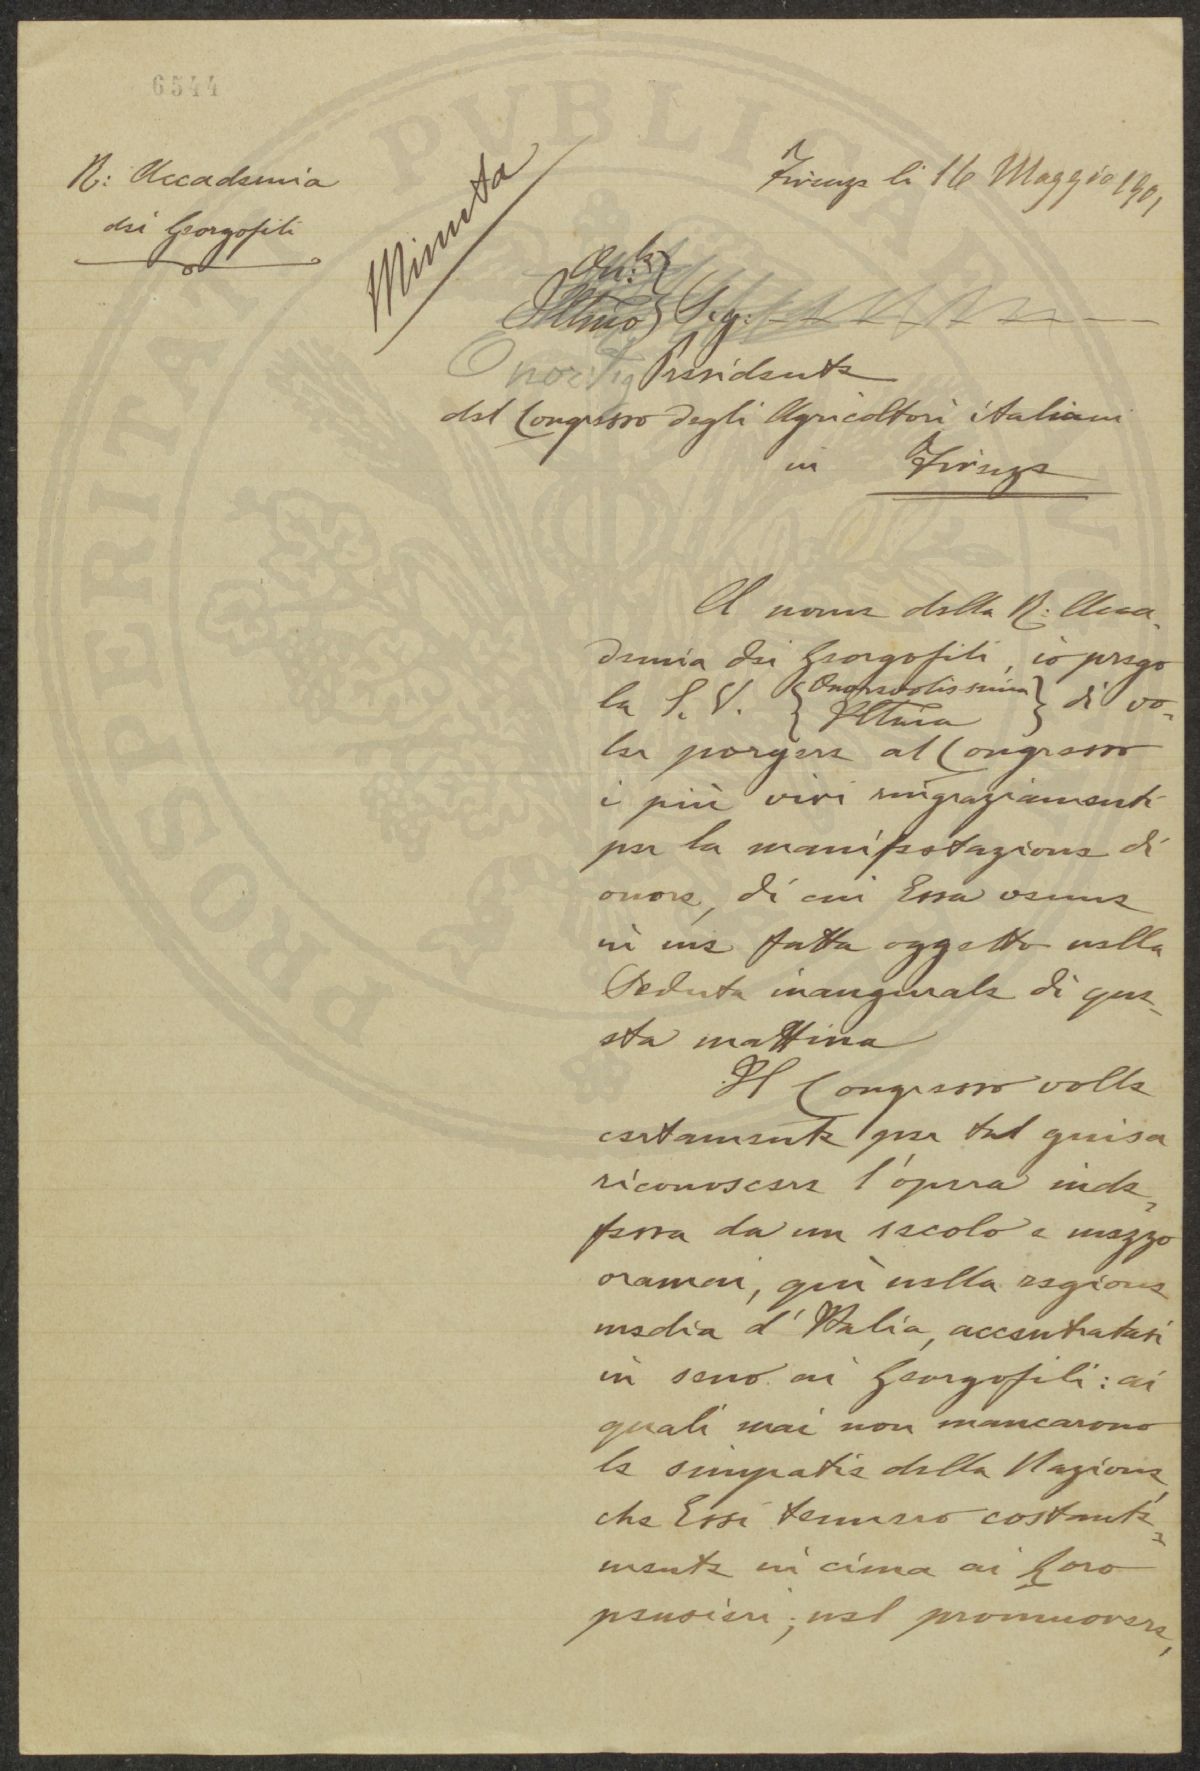 6544
R: Accademia
dei Georgofili
Minuta
Firenze li 16 Maggio 1901
On:le
Illmo Sig:
Onor: Sig Presidente
del Congresso degli Agricoltori italiani
in Firenze
A nome della R: Acca-
demia dei Georgofili, io prego
la S. V. { Onorevolissima
Illma } di vo-
ler porgere al Congresso
i più vivi ringraziamenti
per la manifestazione di
onore, di cui Essa venne
in me fatta oggetto nella
Seduta inaugurale di que-
sta mattina
Il Congresso volle
certamente per tal guisa
riconoscere l'opera inde-
fessa da un secolo e mezzo
oramai, qui nella regione
media d'Italia, accentratasi
in seno ai Georgofili: ai
quali mai non mancarono
le simpatie della Nazione,
che Essi tennero costante-
mente in cima ai Loro
pensieri; nel promuovere,
PROSPERITATI PVBLICAE